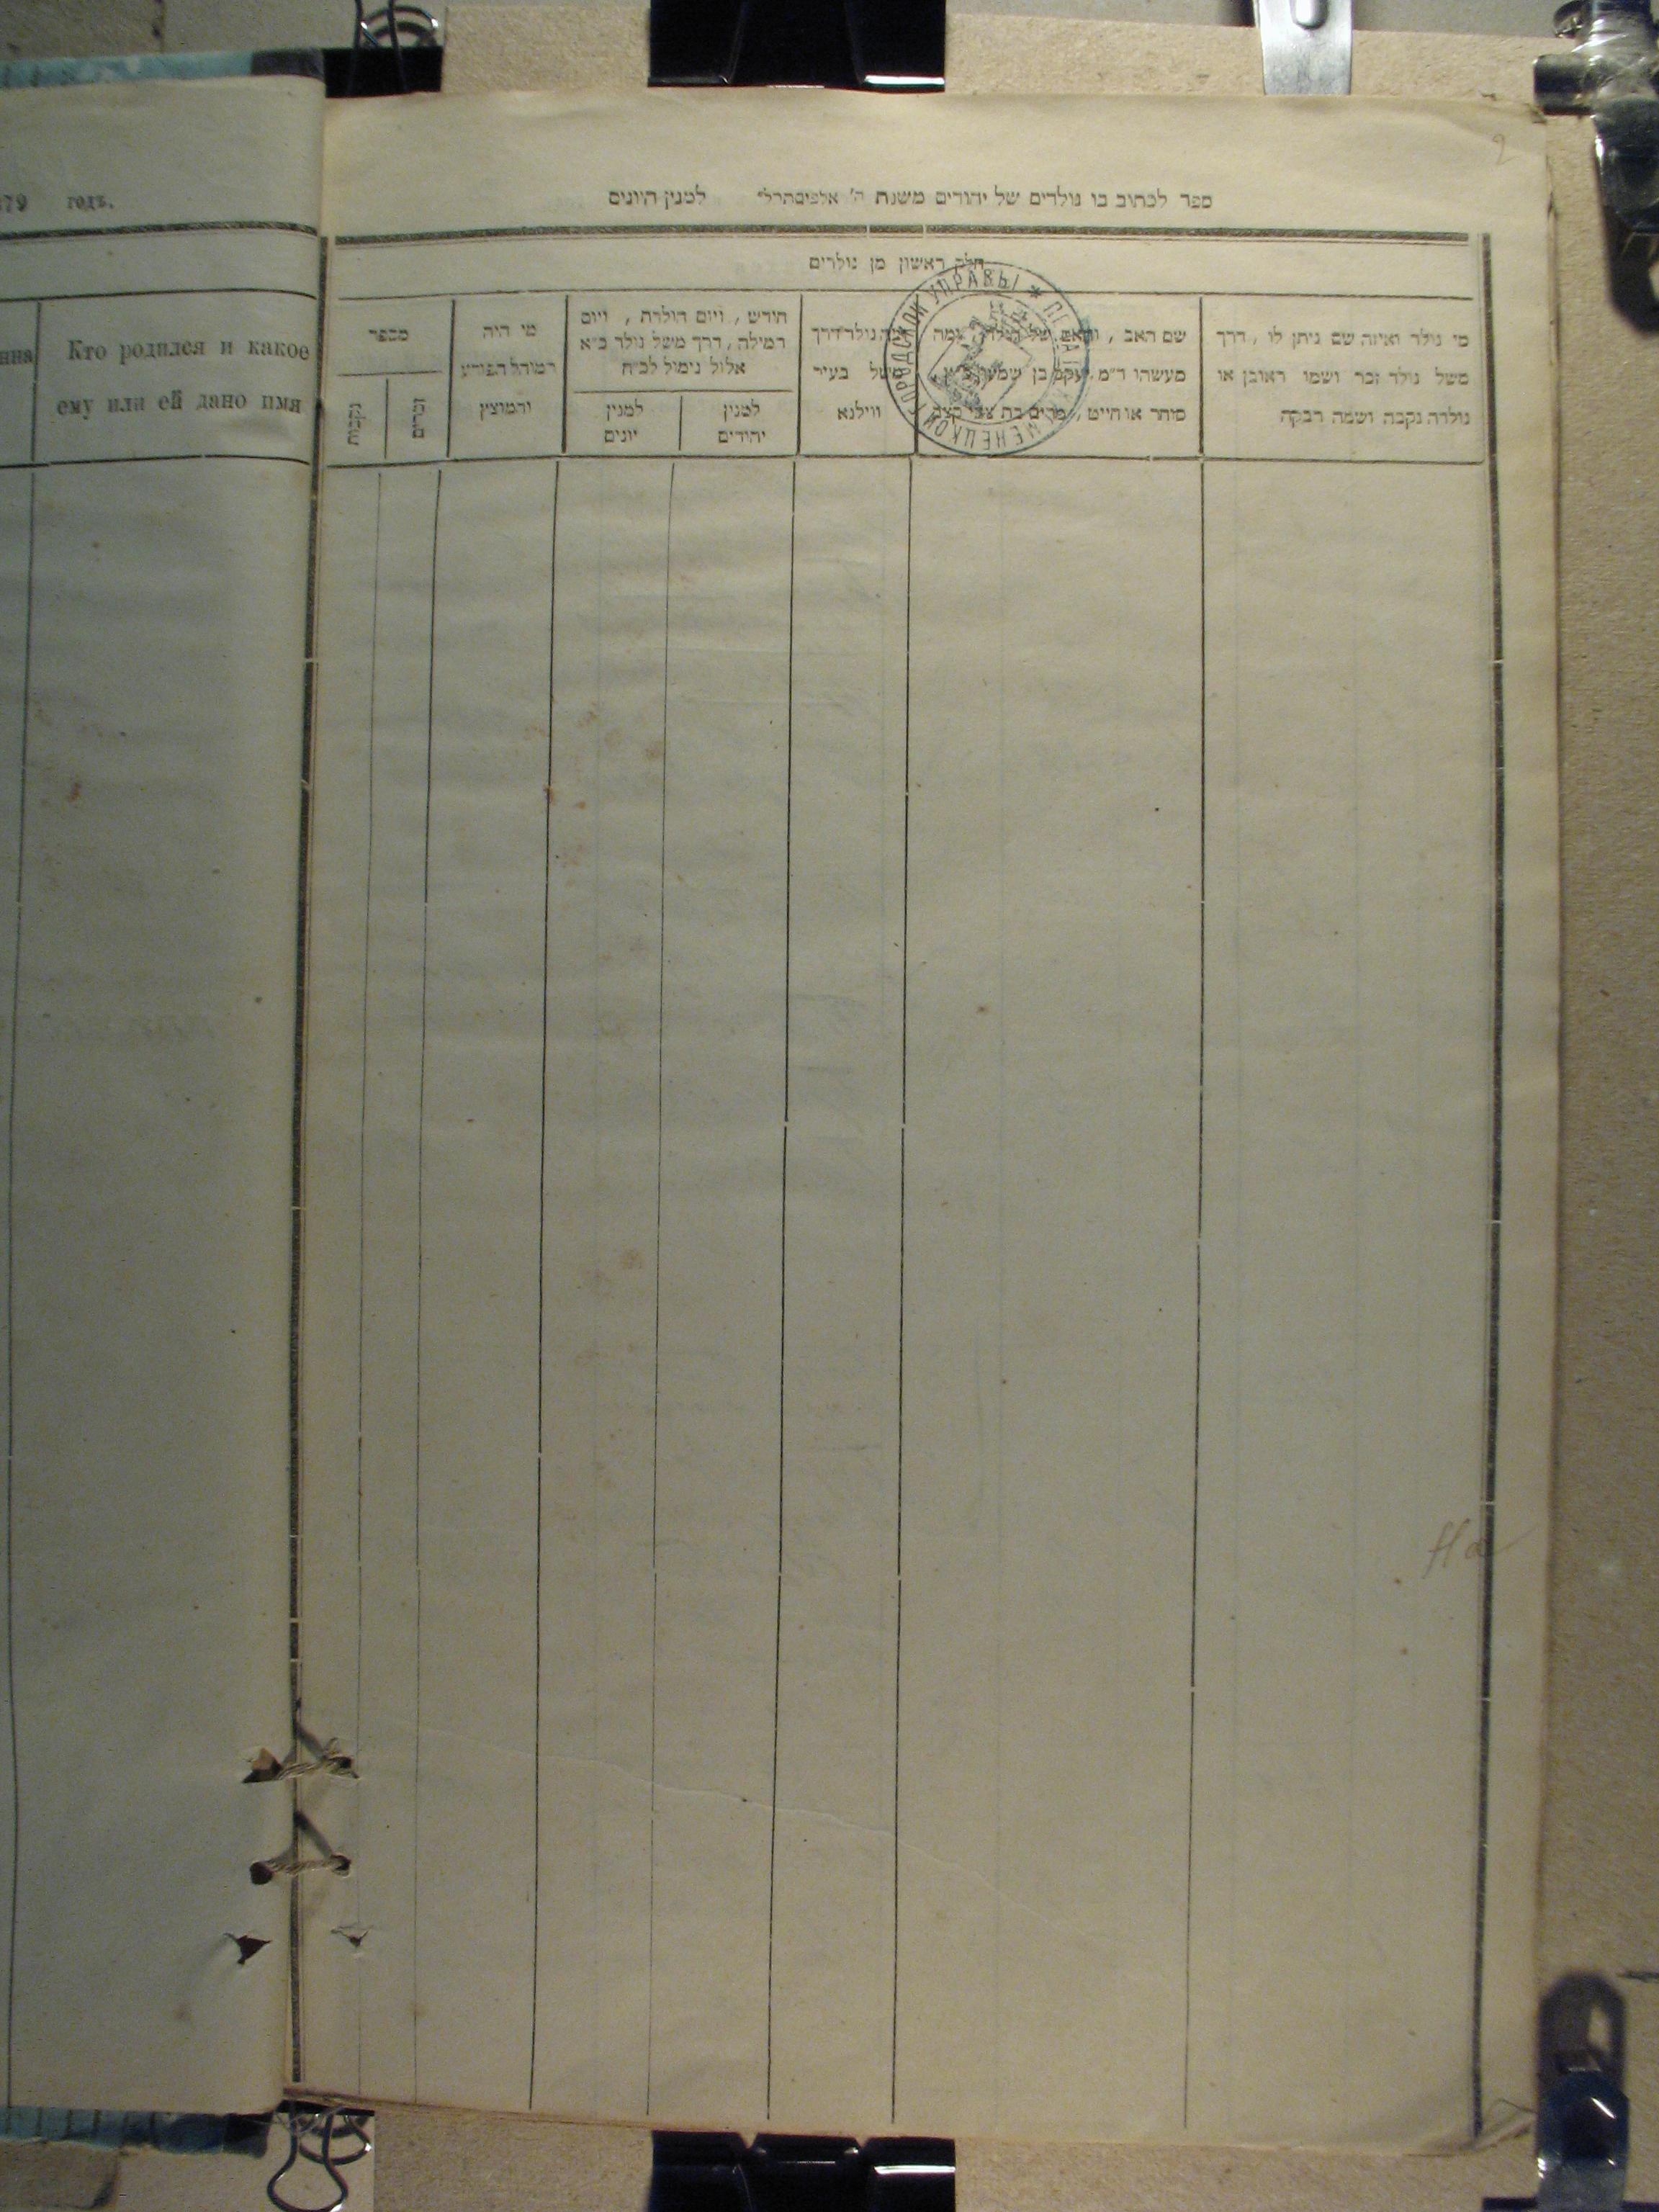 2
79 годъ.
Кто родился и какое
ему или ей дано имя
ספר לכתוב בו נולדים של יהודים משנת ה׳ למנין היונים
חלק ראשון מן נולדים
מי נולד ואיזה שם ניתן לו , דרך
משל נולד זכר ושמו ראובן או
נולדה נקבה ושמה רבקה
שם האב , ומה
מעשהו ד״מ יעקב בן שמעון
סוחר או חייט , מרים בת צבי קצב
נולד דרך
משל בעיר
ווילנא
חודש , ויום הולדת , ויום
המילה , דרך משל נולד כ״א
אלול נימול לכ״ח
למנין
יהודים
למנין
יונים
מי היה
המוהל הפורע
והמוצץ
מספר
זכרים
נקבות
ГОРОДСКОЙ УПРАВЫ *
На